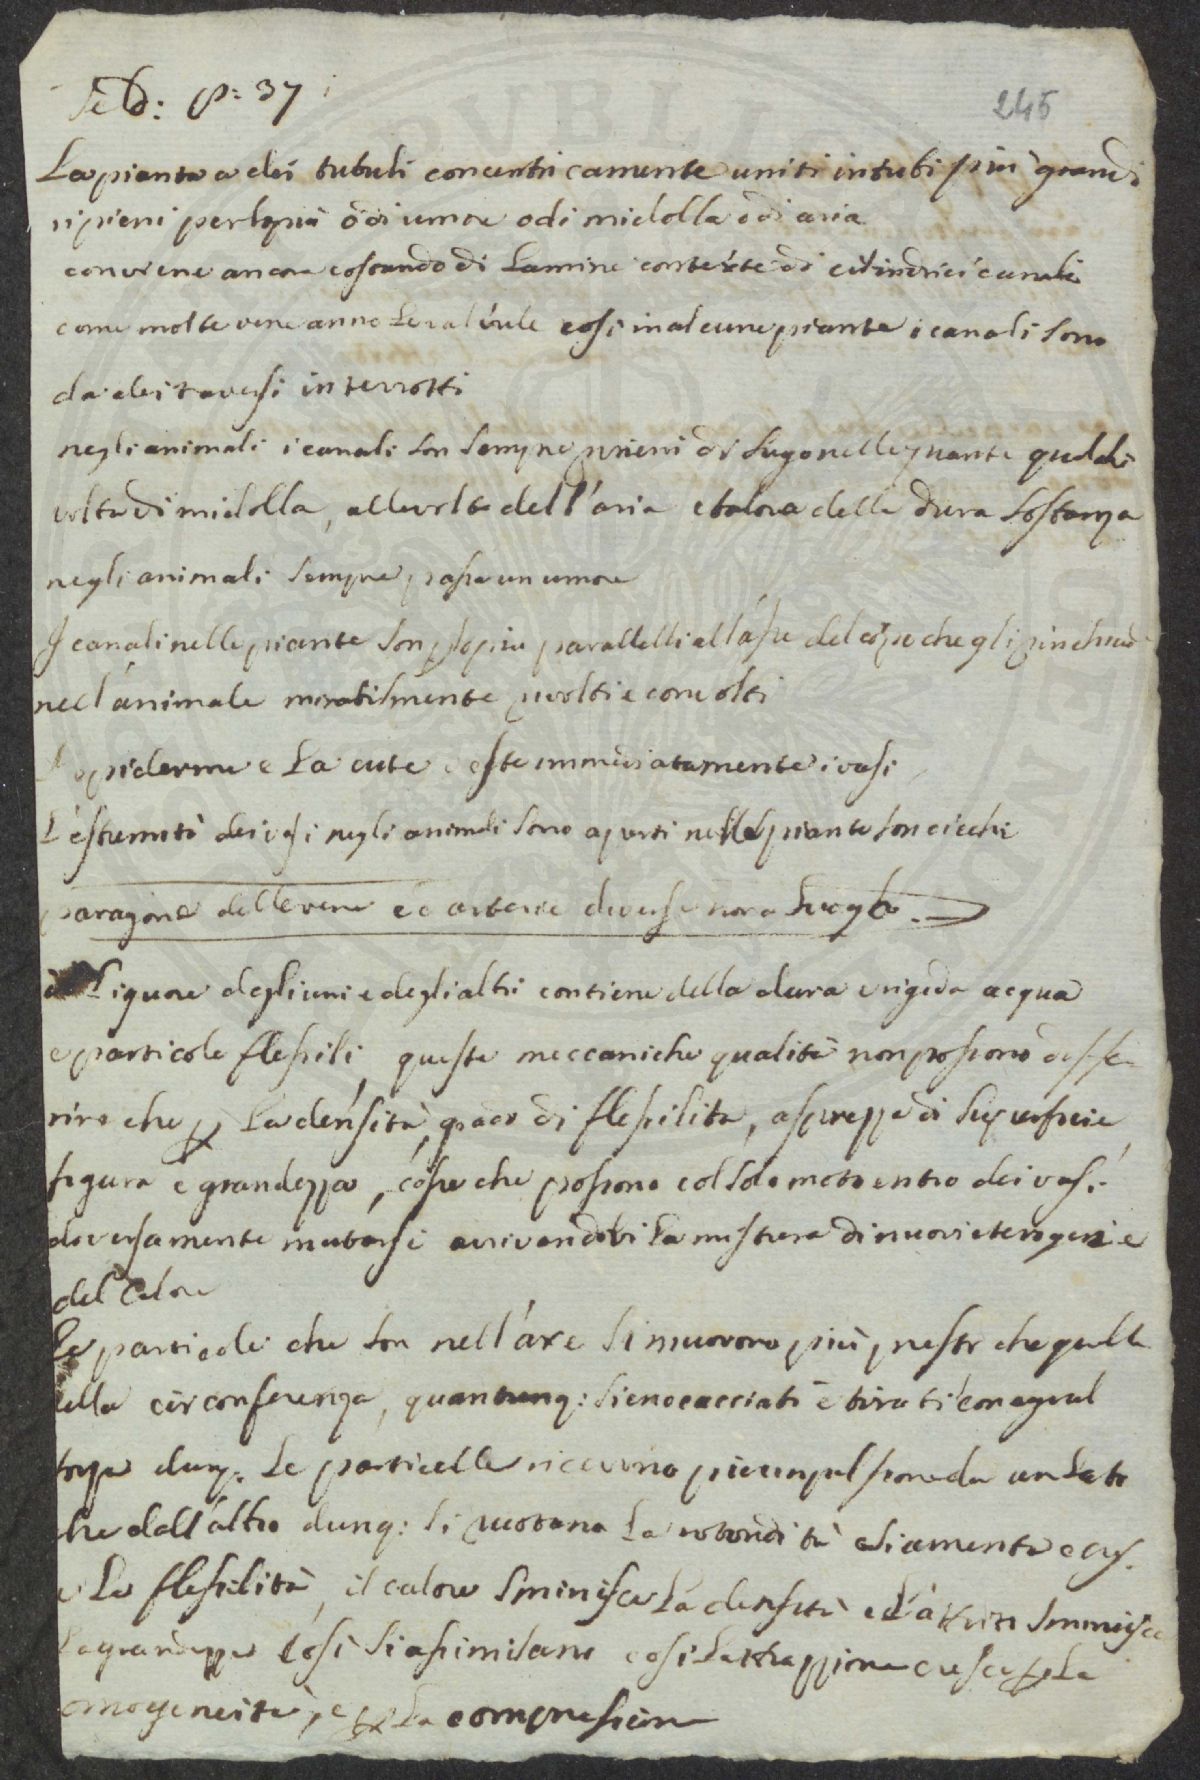 p: 37
245
La pianta a dei tubuli concentricamente uniti in tubi più grandi
ripieni per lo più o di umore o di midolla o di aria
conviene ancora costando di Lamine conteste di cilindrici canali
come molte vene anno le valvule così in alcune piante i canali sono
da dei traversi interrotti
negli animali i canali son sempre ripieni di sugo nelle piante qualche
volta di midolla, alle volte dell'aria e talora della dura sostanza
negli animali sempre passa un umore
I canali nelle piante son p lo più parallelli all'asse del corpo che gli
nell'animale mirabilmente rivolti e convolti
L'epiderme e La cute veste immediatamente i vasi
L'estremità dei vasi negli animali sono aperti nelle piante son ciechi
paragone delle vene ed arterie
il Liquore degli uni e degli altri contiene della dura e rigida acqua
e particole flessili queste meccaniche qualità non possono diffe
rire che p La densità, grado di flessilita, asprezza di superficie
figura e grandezza, cose che possono col solo moto entro dei vasi
diversamente mutarsi arrivandovi la mistura di nuovi eterogeni e
del Calore
Le particole che son nell'axe si muovono più preste che quelle
della circonferenza, quantunq: sieno cacciati e tirati con egual
forza dunq. Le particelle ricevono più impulsione da un lato
che dall'altro dunq: si ruotano La rotondità
e La flessilità, il calore sminuisce La densità e L'attrito sminuisce
La grandezza Così si assimilano così L'attrazzione cresce p La
omogeneità, e p La compressione